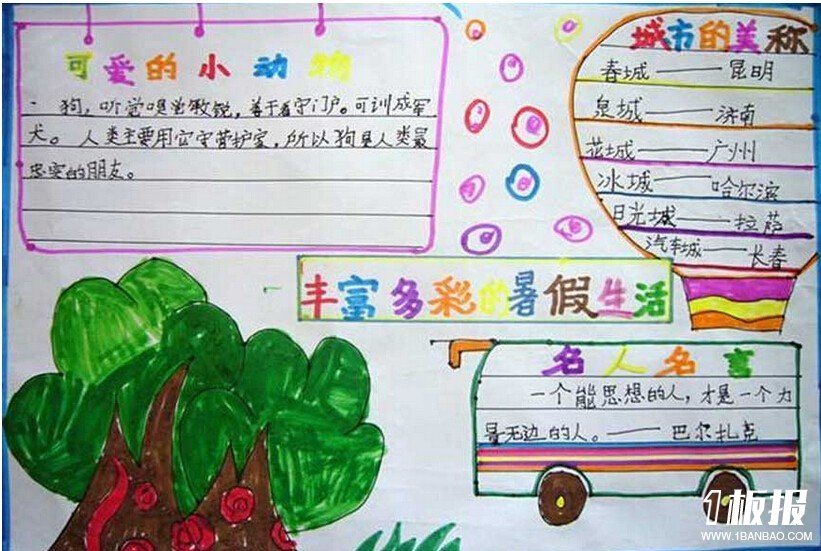 可爱的小动物
狗，听觉嗅觉敏锐，善于看守门户。可训成军
犬。人类主要用它守营护家，所以狗是人类最
忠实的朋友。
城市的美称
春城——昆明
泉城——济南
花城——广州
冰城——哈尔滨
日光城——拉萨
汽车城——长春
丰富多彩的暑假生活
名人名言
一个能思想的人，才是一个力
量无边的人。——巴尔扎克
1板报
WWW.1BANBAO.COM